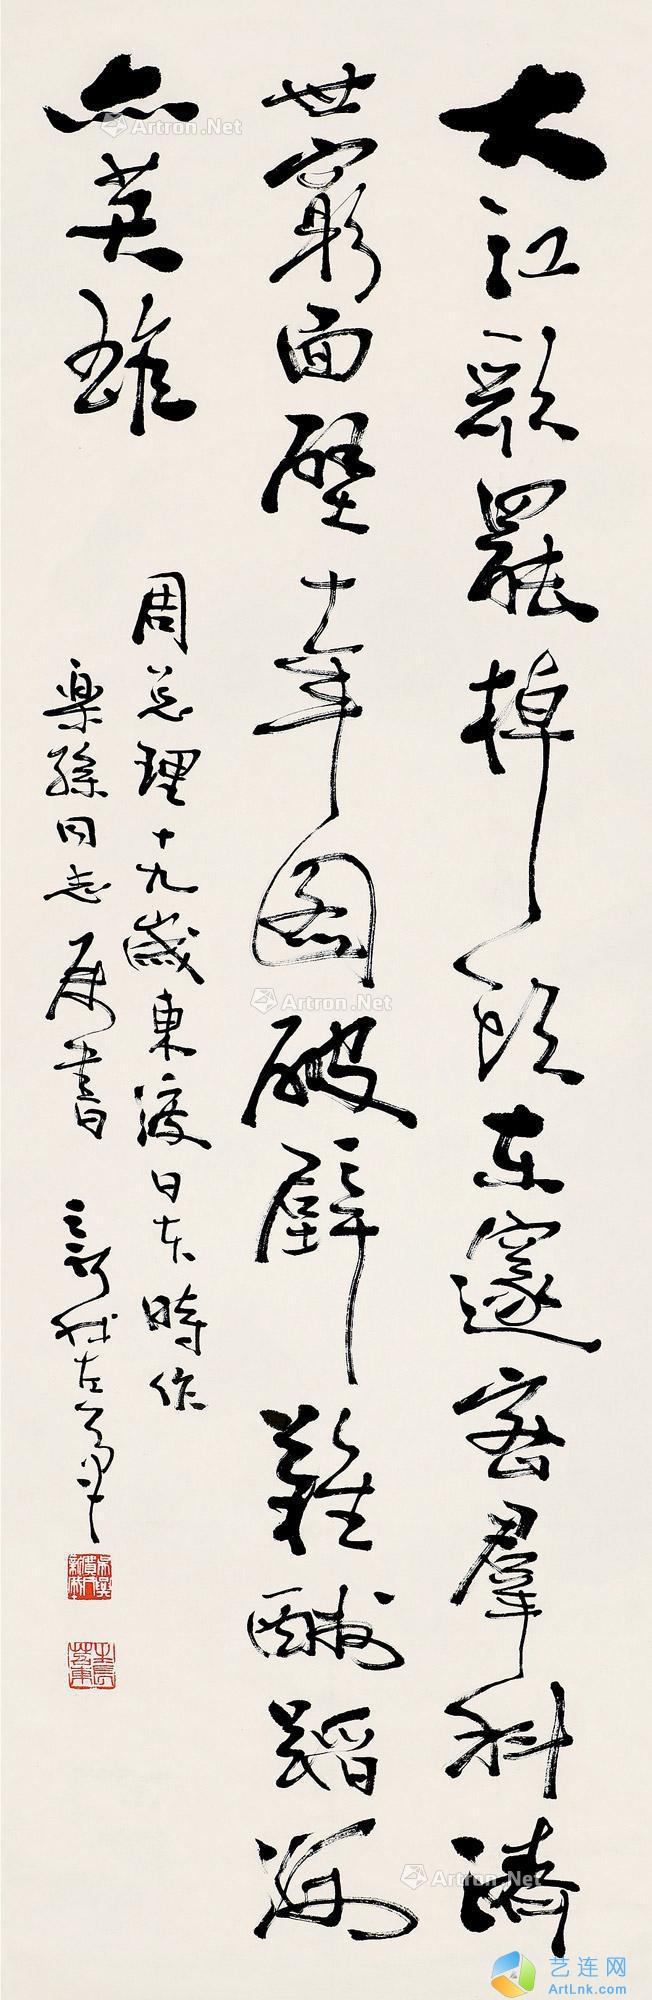 大江歌罷掉头东邃密羣科濟
世窮面壁十年图破壁難酬蹈海
亦英雄
周总理十九歲東渡日本時作
同志属書 新我左筆
Artron.Net
Artron.Net
Artron.Net
艺连网
ArtLnk.com